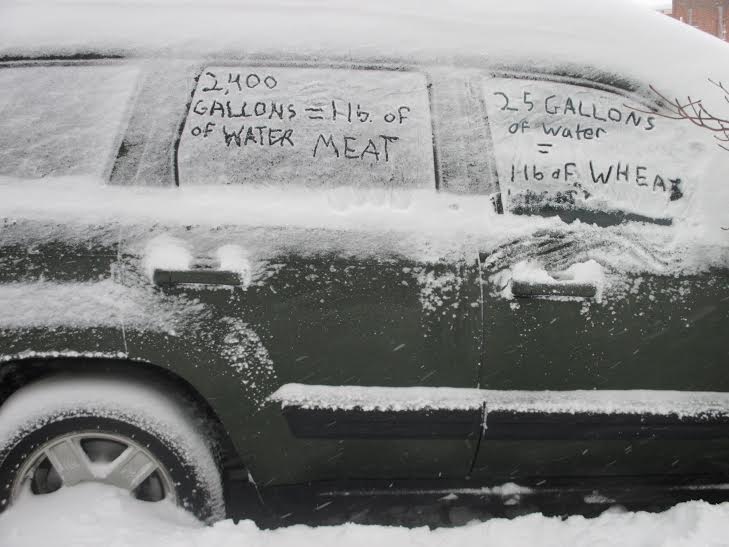 2,400
GALLONS = 1 lb. of
of WATER MEAT
25 GALLONS
of water
=
1 lb of WHEAT